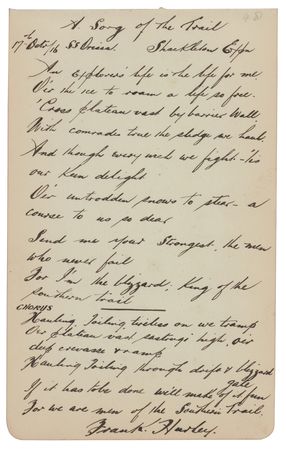 A Song of the Trail
17th Octr/16 SS Orissa. Shackleton Expn
An Explorer's life is the life for me.
O'er the ice to roam a life so free.
'Cross plateau vast by barrier Wall,
With comrades true the sledge we haul.
And though every we fight - 'tis
our keen delight
O'er untrodden snows to steer - a
course to us so dear
Send me your Strongest, the men
who never fail
For I'm the blizzard, King of the
Southern trail
CHORUS
Hauling, Toiling on we tramp
O'er plateau vast sastrugi high, o'er
deep crevasse & ramp
Hauling Toiling through drift & blizzard
gale
If it has to be done will make of it fun
For we are men of the Southern Trail.
Frank Hurley.